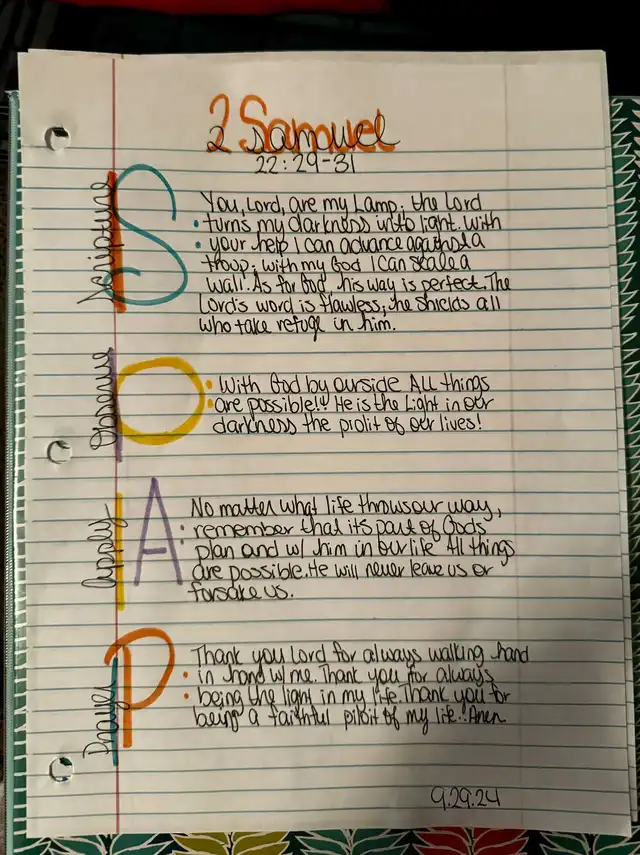 2 Samuel
22:29-31
Scripture
S
You, Lord, are my Lamp; the Lord
: turns my darkness into light. With
your help I can advance against a
troup; with my God I can scale a
wall. As for God, his way is perfect. The
Lord's word is flawless; he shields all
who take refuge in him.
Observe
O
: With God by ourside All things
are possible!! He is the Light in our
darkness the piolit of our lives!
Apply
A
No matter what life throws our way,
: remember that its part of Gods
plan and w/ him in our life All things
are possible. He will never leave us or
forsake us.
Prayer
P
Thank you Lord for always walking hand
: in hand w/ me. Thank you for always
being the light in my life. Thank you for
being a faithful piloit of my life!! Amen
9.29.24